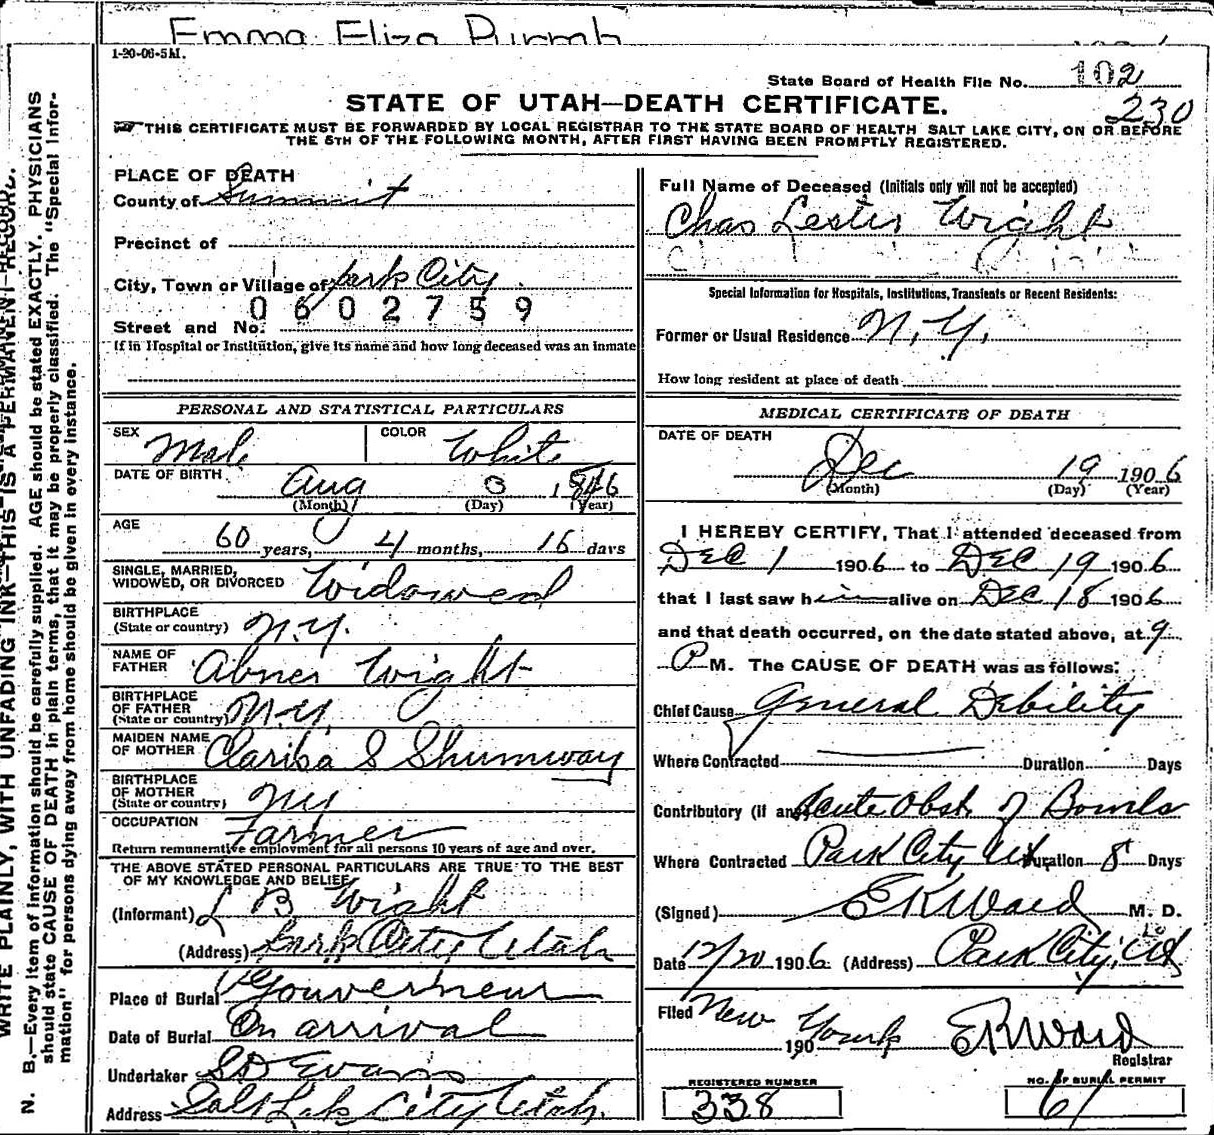 Emma Eliza
1-20-06-5M.
State Board of Health File No. 102
230
STATE OF UTAH—DEATH CERTIFICATE.
THIS CERTIFICATE MUST BE FORWARDED BY LOCAL REGISTRAR TO THE STATE BOARD OF HEALTH SALT LAKE CITY, ON OR BEFORE
THE 5TH OF THE FOLLOWING MONTH, AFTER FIRST HAVING BEEN PROMPTLY REGISTERED.
WRITE PLAINLY, WITH UNFADING INK—THIS IS A PERMANENT RECORD.
N. B.—Every item of information should be carefully supplied. AGE should be stated EXACTLY. PHYSICIANS
should state CAUSE OF DEATH in plain terms, that it may be properly classified. The "Special Infor-
mation" for persons dying away from home should be given in every instance.
PLACE OF DEATH
County of Summit
Precinct of
City, Town or Village of Park City.
0602759
Street and No.
If in Hospital or Institution, give its name and how long deceased was an inmate
PERSONAL AND STATISTICAL PARTICULARS
SEX Male COLOR White
DATE OF BIRTH Aug 3 1846
(Month) (Day) (Year)
AGE 60 years, 4 months, 16 days
SINGLE, MARRIED,
WIDOWED, OR DIVORCED Widowed
BIRTHPLACE
(State or country) N.Y.
NAME OF
FATHER Abner Wight
BIRTHPLACE
OF FATHER
(State or country) N.Y.
MAIDEN NAME
OF MOTHER Clarisa S Shumway
BIRTHPLACE
OF MOTHER
(State or country) NY
OCCUPATION Farmer
Return remunerative employment for all persons 10 years of age and over.
THE ABOVE STATED PERSONAL PARTICULARS ARE TRUE TO THE BEST
OF MY KNOWLEDGE AND BELIEF
(Informant) L B Wight
(Address) Park City Utah
Place of Burial Gouverneur
Date of Burial On arrival
Undertaker SD Evans
Address Salt Lake City Utah.
Full Name of Deceased (Initials only will not be accepted)
Chas Lester Wight
Special Information for Hospitals, Institutions, Transients or Recent Residents:
Former or Usual Residence N.Y.
How long resident at place of death
MEDICAL CERTIFICATE OF DEATH
DATE OF DEATH
Dec 19 1906
(Month) (Day) (Year)
I HEREBY CERTIFY, That I attended deceased from
DEC 1 1906 to DEC 19 1906
that I last saw him alive on DEC 18 1906
and that death occurred, on the date stated above, at 9
P M. The CAUSE OF DEATH was as follows:
Chief Cause General Debility
Where Contracted Duration Days
Contributory (if any) Acute Obst. of Bowels
Where Contracted Park City Ut. Duration 8 Days
(Signed) ERWard M. D.
Date 12/20 1906 (Address) Park City, Ut
Filed New Yourk 190 ERWard
Registrar
REGISTERED NUMBER
338
NO. OF BURIAL PERMIT
61